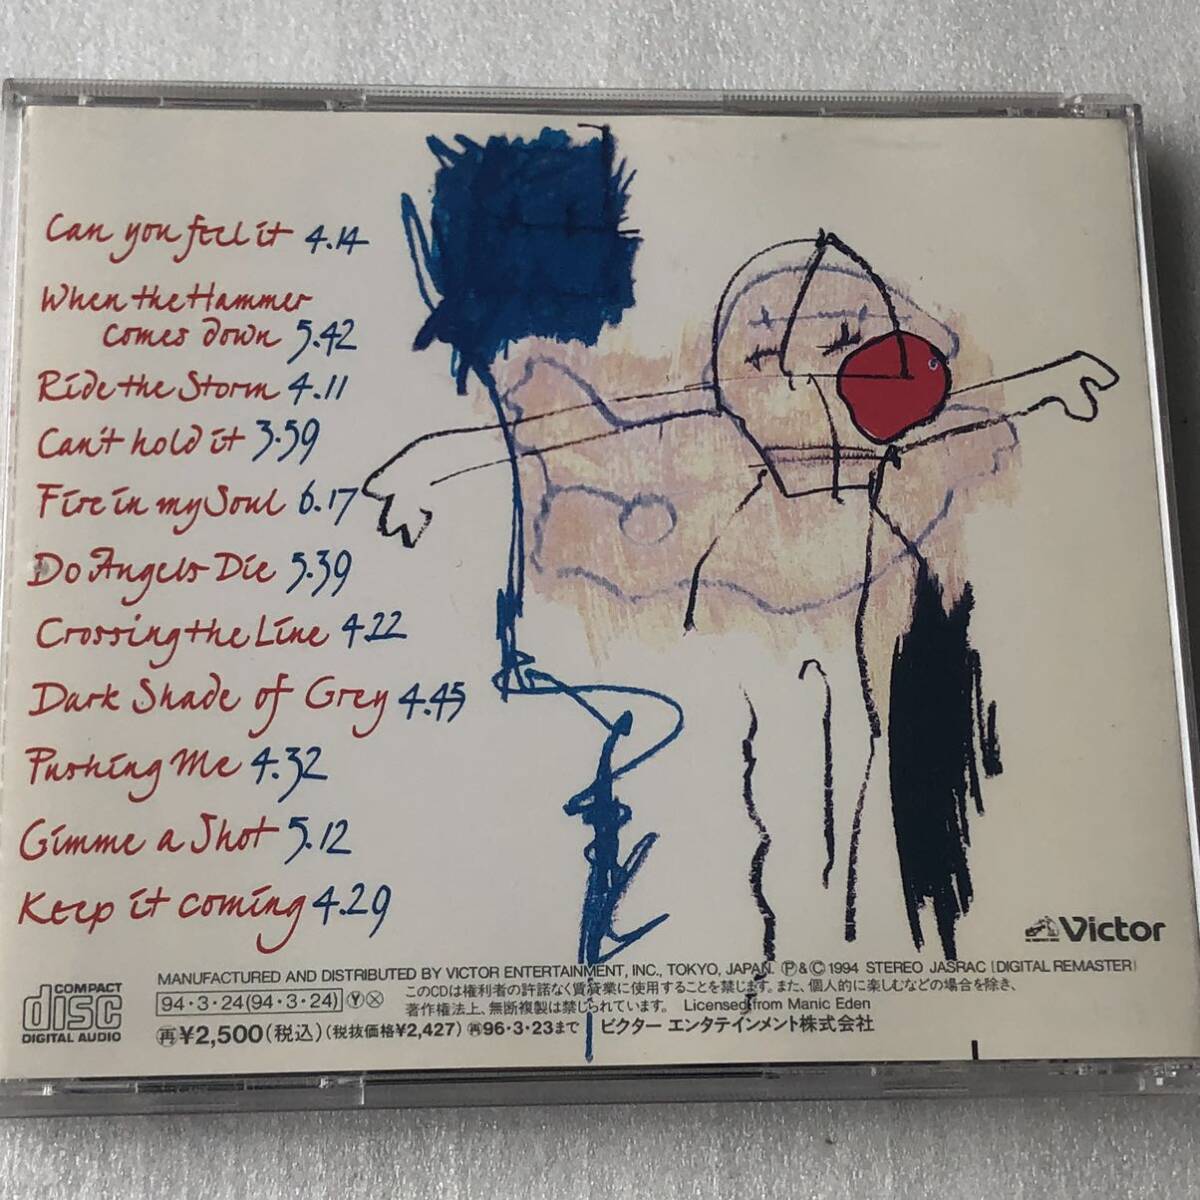 Can you feel it 4.14
When the Hammer
comes down 5.42
Ride the Storm 4.11
Can't hold it 3.59
Fire in my Soul 6.17
Do Angels Die 5.39
Crossing the Line 4.22
Dark Shade of Grey 4.45
Pushing Me 4.32
Gimme a Shot 5.12
Keep it coming 4.29
Victor
COMPACT
disc
DIGITAL AUDIO
MANUFACTURED AND DISTRIBUTED BY VICTOR ENTERTAINMENT, INC., TOKYO, JAPAN. Ⓟ&Ⓒ 1994 STEREO JASRAC [DIGITAL REMASTER]
94・3・24(94・3・24) Ⓨ
このCDは権利者の許諾なく賃貸業に使用することを禁じます。また、個人的に楽しむなどの場合を除き、
著作権法上、無断複製は禁じられています。 Licensed from Manic Eden
再¥2,500(税込)(税抜価格¥2,427) 再96・3・23まで ビクター エンタテインメント株式会社